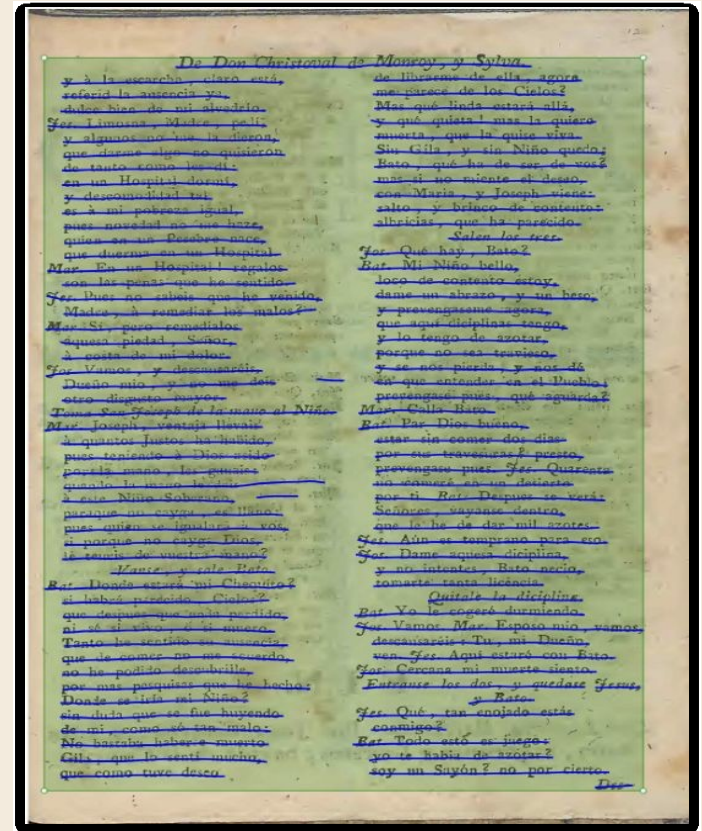 De Don Christoval de Monroy, y Sylva.
y à la escarcha, claro está,
referid la ausencia ya,
dulce bien de mi alvedrio.
Jes. Limosna, Madre, pedí,
y algunos no me dieron,
que darme algo no quisieron
de tanto como les dí:
en un Hospital dormí,
y descomodidad tal
es à mi pobreza igual,
pues novedad no me hace,
quien en un Pesebre nace,
que duerma en un Hospital.
Mar. En un Hospital! regalos
son las penas que he sentido.
Jes. Pues no sabeis que he venido,
Madre, à remediar los malos?
Mar. Si, pero remedialos
aquesa piedad, Señor,
à costa de mi dolor.
Jos. Vamos, y descansaréis,
Dueño mio, y no me deis
otro disgusto mayor.
Toma San Joseph de la mano al Niño.
Mar. Joseph, ventaja llevais
à quantos Justos ha habido,
pues teniendo à Dios asido
por la mano, le guiais:
quando la mano le dais
à este Niño Soberano,
paraque no cayga, es llano
pues quien se igualará à vos,
si porque no cayga Dios,
le teneis de vuestra mano?
Vanse, y sale Bato.
Bat. Donde estará mi Chequito?
si habrá perecido, Cielos?
que despues que anda perdido,
ni sé si vivo, ó si muero.
Tanto he sentido su ausencia,
que de comer no me acuerdo,
no he podido descubrille,
por mas pesquisas que he hecho:
Donde se iria mi Niño?
sin duda que se fue huyendo
de mi, como só tan malo:
No bastaba haberse muerto
Gila, que lo sentí mucho,
que como tuve deseo
de librarme de ella, agora
me parece de los Cielos?
Mas qué linda estará allá,
y qué quieta! mas la quiero
muerta, que la quise viva.
Sin Gila, y sin Niño quedo;
Bato, qué ha de ser de vos?
mas si no miente el deseo,
con Maria, y Joseph viene:
salto, y brinco de contento:
albricias, que ha parecido.
Salen los tres.
Jos. Qué hay, Bato?
Bat. Mi Niño bello,
loco de contento estoy,
dame un abrazo, y un beso,
y prevengaseme agora,
que aqui diciplinas tengo,
y lo tengo de azotar,
porque no sea travieso,
y se nos pierda, y nos dé
en que entender en el Pueblo;
prevengase pues, qué aguarda?
Mar. Calla Bato.
Bat. Par Dios bueno,
estar sin comer dos dias
por sus travesuras? presto,
prevengase pues. Jes. Quarenta
no comeré en un desierto
por ti. Bat. Despues se verá:
Señores, vayanse dentro,
que le he de dar mil azotes.
Jes. Aún es temprano para eso.
Jos. Dame aquesa diciplina,
y no intentes, Bato necio,
tomarte tanta licencia.
Quitale la diciplina.
Bat. Yo le cogeré durmiendo.
Jos. Vamos. Mar. Esposo mio, vamos,
descansaréis: Tu, mi Dueño,
ven. Jes. Aquí estaré con Bato.
Jos. Cercana mi muerte siento.
Entranse los dos, y quedase Jesus,
y Bato.
Jes. Qué, tan enojado estás
conmigo?
Bat. Todo esto es juego:
yo te habia de azotar?
soy un Sayón? no por cierto.
Des-